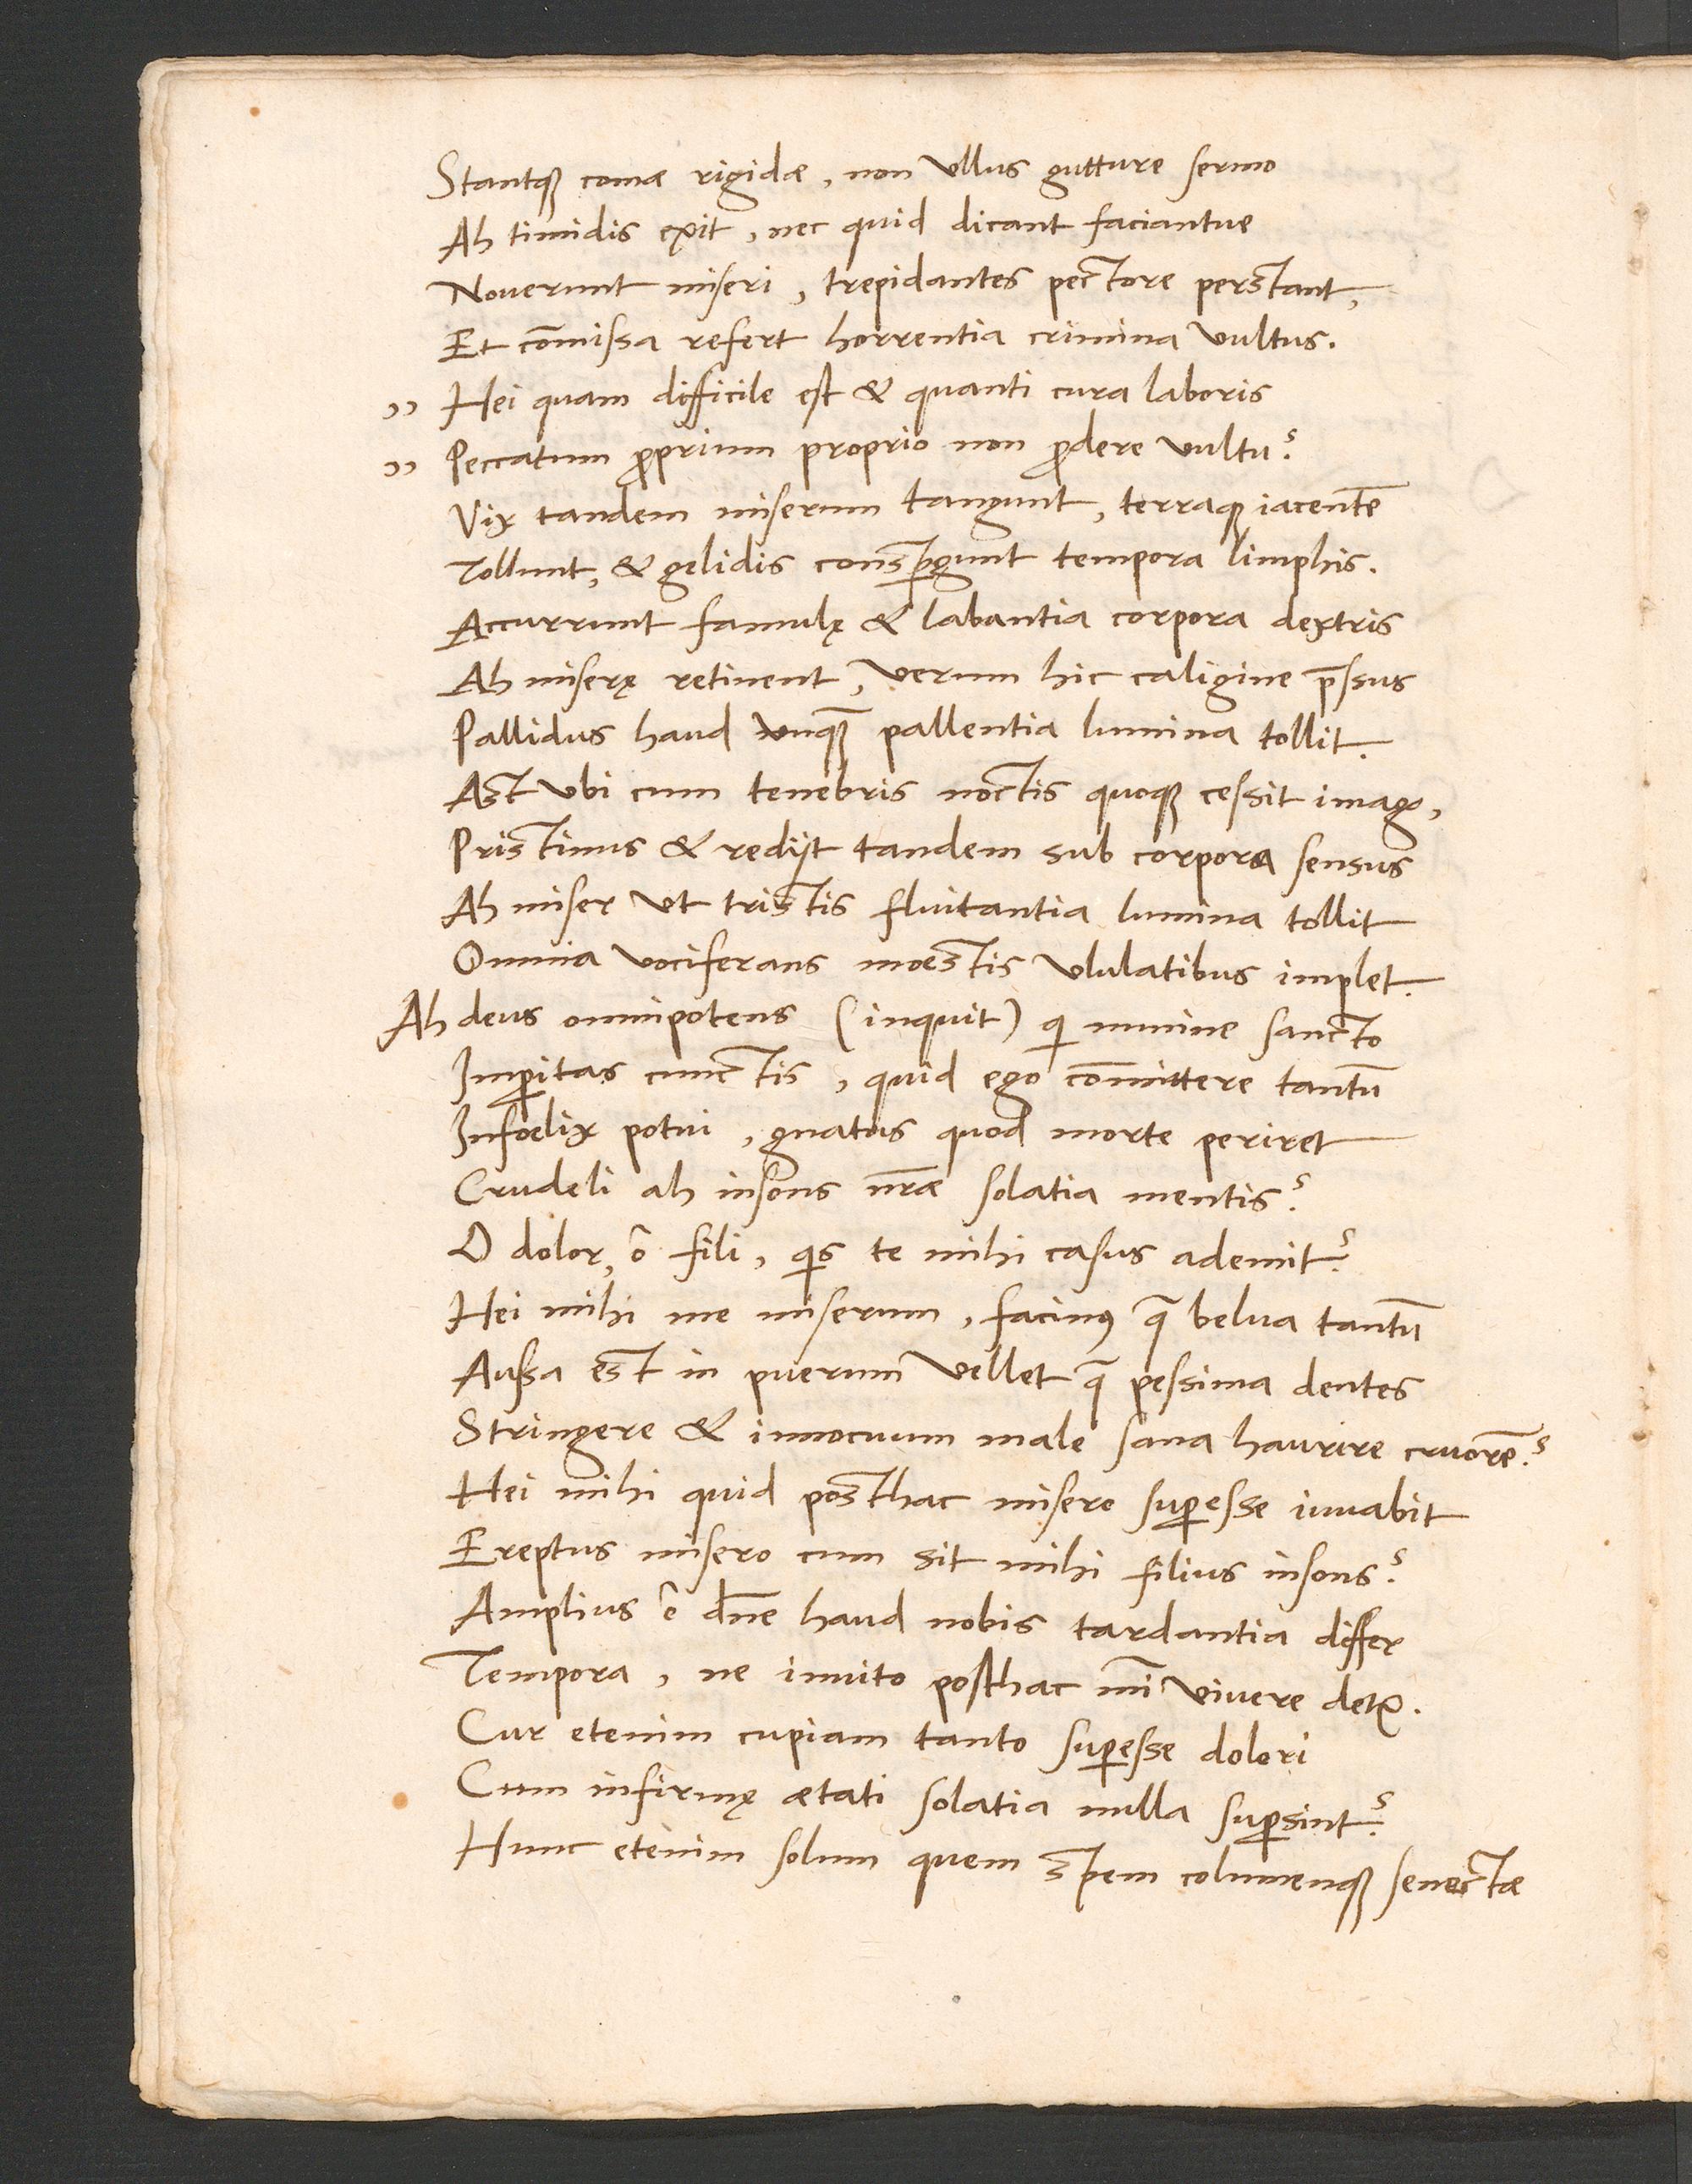 Stantqꝫ comæ rigidæ, non vllus gutture sermo
Ah timidis exit, nec quid dicant faciantue
Nouerunt miseri, trepidantes pectore perstant,
Et com̄issa refert horrentia crimina vultus.
„ Hei quam difficile est & quanti cura laboris
„ Peccatum ꝓprium proprio non ꝓdere vultu?
Vix tandem miserum tangunt, terraqꝫ iacentē
Tollunt, & gelidis conspꝑgunt tempora limphis.
Accurrunt famulę & labantia corpora dextris
Ah miserę retinent, verum hic caligine p̄ssus
Pallidus haud vnqꝫ̄ pallentia lumina tollit.
Ast vbi cum tenebris noctis quoqꝫ cessit imago,
Pristinus & redijt tandem sub corpora sensus
Ah miser vt tristis fluitantia lumina tollit
Omnia vociferans moestis vlulatibus implet.
Ah deus omnipotens (inquit) qi numine sancto
Imꝑitas cunctis, quid ego com̄ittere tantū
Infoelix potui, gnatus quod morte periret
Crudeli ah insons nr̄æ solatia mentis?
O dolor, ô fili, qis te mihi casus ademit?
Hei mihi me miserum, facinꝰ q̄ belua tantū
Aussa est in puerum vellet q̄ pessima dentes
Stringere & innocuum male sana haurire cruorē?
Hei mihi quid posthac misero suꝑesse iuuabit
Ereptus misero cum sit mihi filius insons?
Amplius ô dn̄e haud nobis tardantia differ
Tempora, ne inuito posthac mi̅ viuere detꝛ.
Cur etenim cupiam tanto suꝑesse dolori
Cum infirmę ætati solatia nulla suꝑsint?
Hunc etenim solum quem spem columenqꝫ senectæ